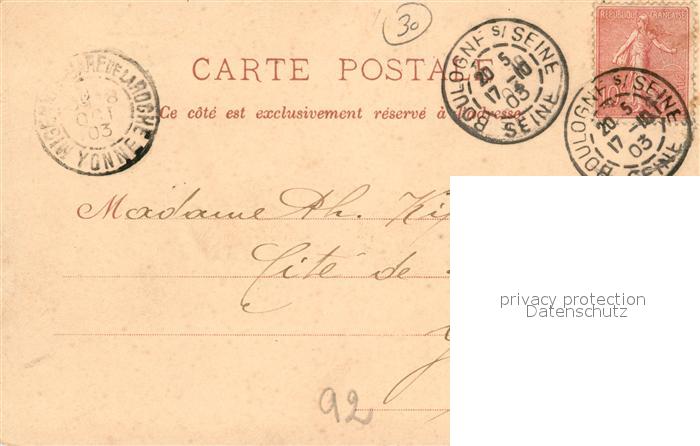 30
REPUBLIQUE FRANÇAISE
BOULOGNE S/ SEINE
20 5
17 -10
03
SEINE
BOULOGNE S/ SEINE
20 5
17 -10
03
SEINE
CARTE POSTALE
Ce côté est exclusivement réservé à l'adresse
LAROCHE
OCT
03
YONNE
Madame Ph.
Cité de
92
privacy protection
Datenschutz